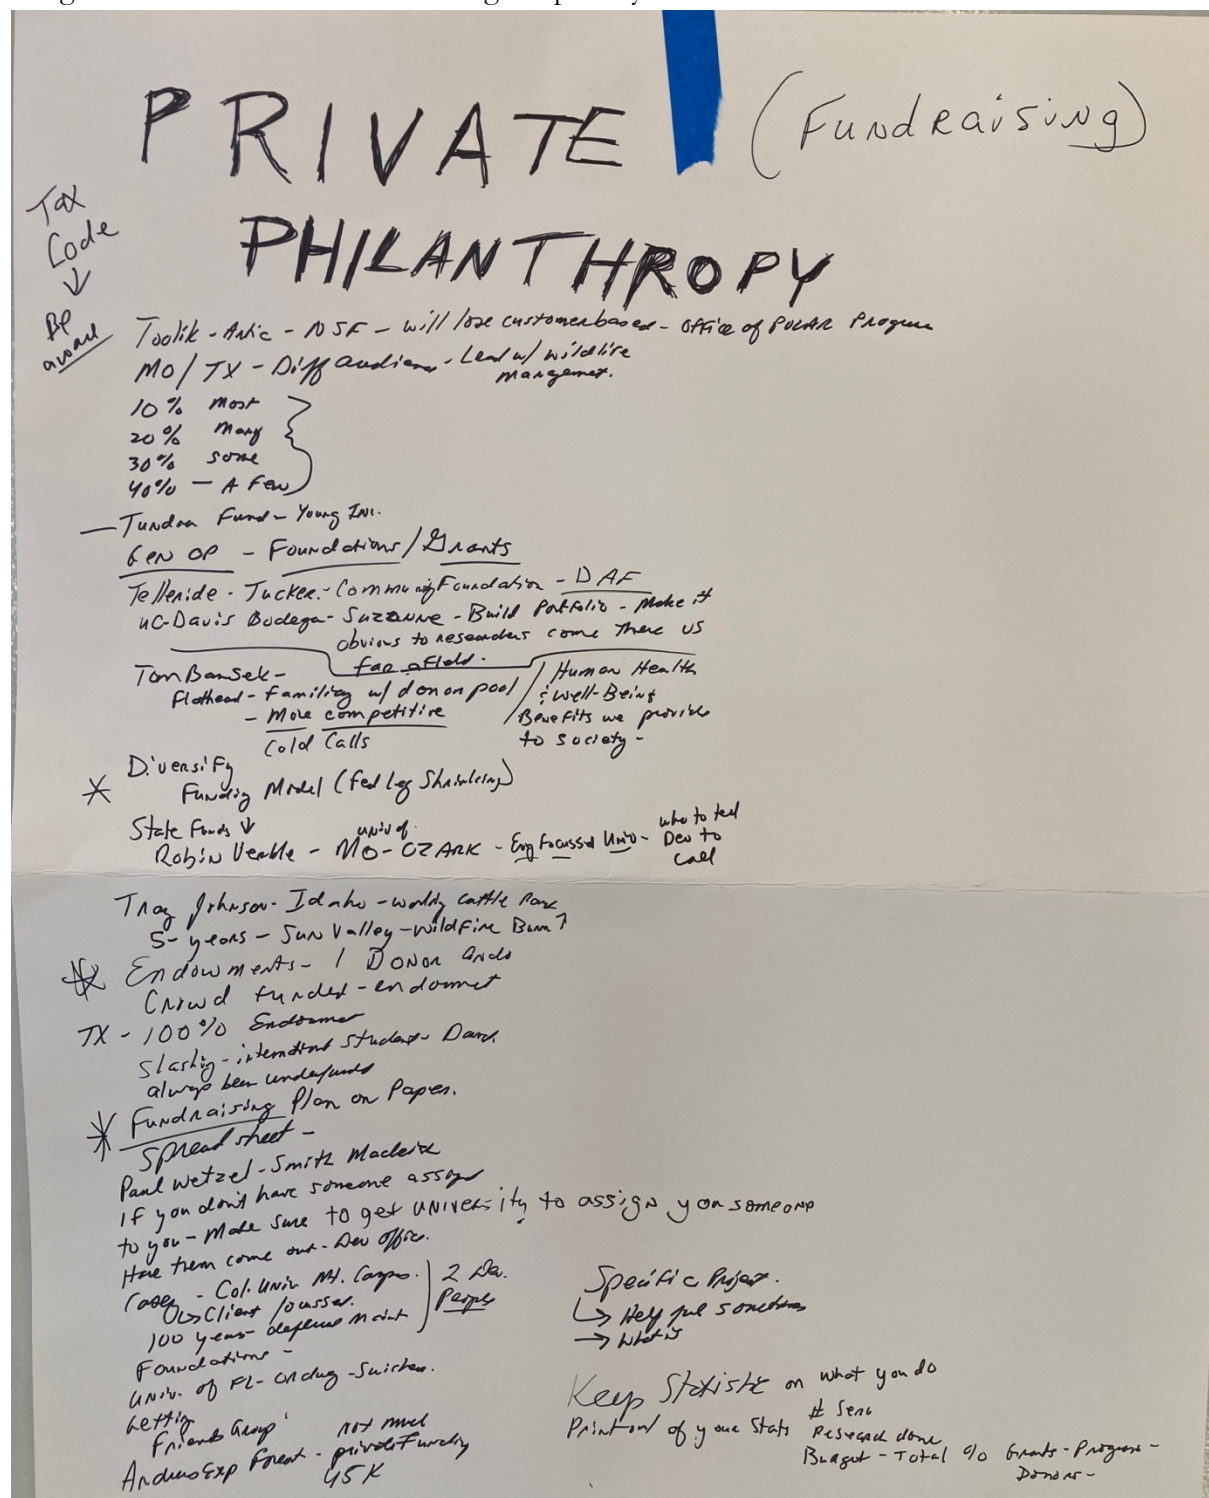 PRIVATE (Fundraising)
PHILANTHROPY
Tax
Code
↓
Be
aware
Toolik - Artic - NSF - will lose customer based - Office of POLAR Program
MO/TX - Diff audience - Lead w/ wildlife
management.
10% Most
20% Many
30% Some
40% - A Few
- Tundra Fund - Young Inv.
Gen OP - Foundations/Grants
Telleride - Tucker - Community Foundation - DAF
UC-Davis Bodega - Suzanne - Build Portfolio - Make it
obvious to researchers come there us
far afield.
Tom Bansek -
Flathead - Familiar w/ donor pool
- More competitive
Cold Calls
Human Health
& Well-Being
Benefits we provide
to society -
* Diversify
Funding Model (Fed leg Shrinking)
State Funds ↓
Robin Verble - univ of MO - OZARK - Eng Focussed Univ - who to tell
Dev to
call
Johnson - Idaho - cattle
5 - years - Sun Valley - Wildfire Burn ↑
* Endowments - 1 Donor
Crowd funded - endowment
TX - 100% Endowment
Slashing - international students -
always been underfunded
* Fundraising Plan on Paper.
Spreadsheet -
Paul Wetzel - Smith
If you don't have someone assign
to you - Make sure to get university to assign you someone
Have them come out - Dev office.
Casey - Col. Univ Mt. Campus.
↳ Client focussed.
100 years - deferred maint
2 Dev.
People
Foundations -
Univ. of FL -
Getting
Friends Group
Andrews Exp Forest - not much
private Funding
45K
Specific Project.
↳ Helpful sometimes
→ What is
Keep Statistic on what you do
Printout of your Stats # Serv
Research done
Budget - Total % Grants - Program -
Donors -